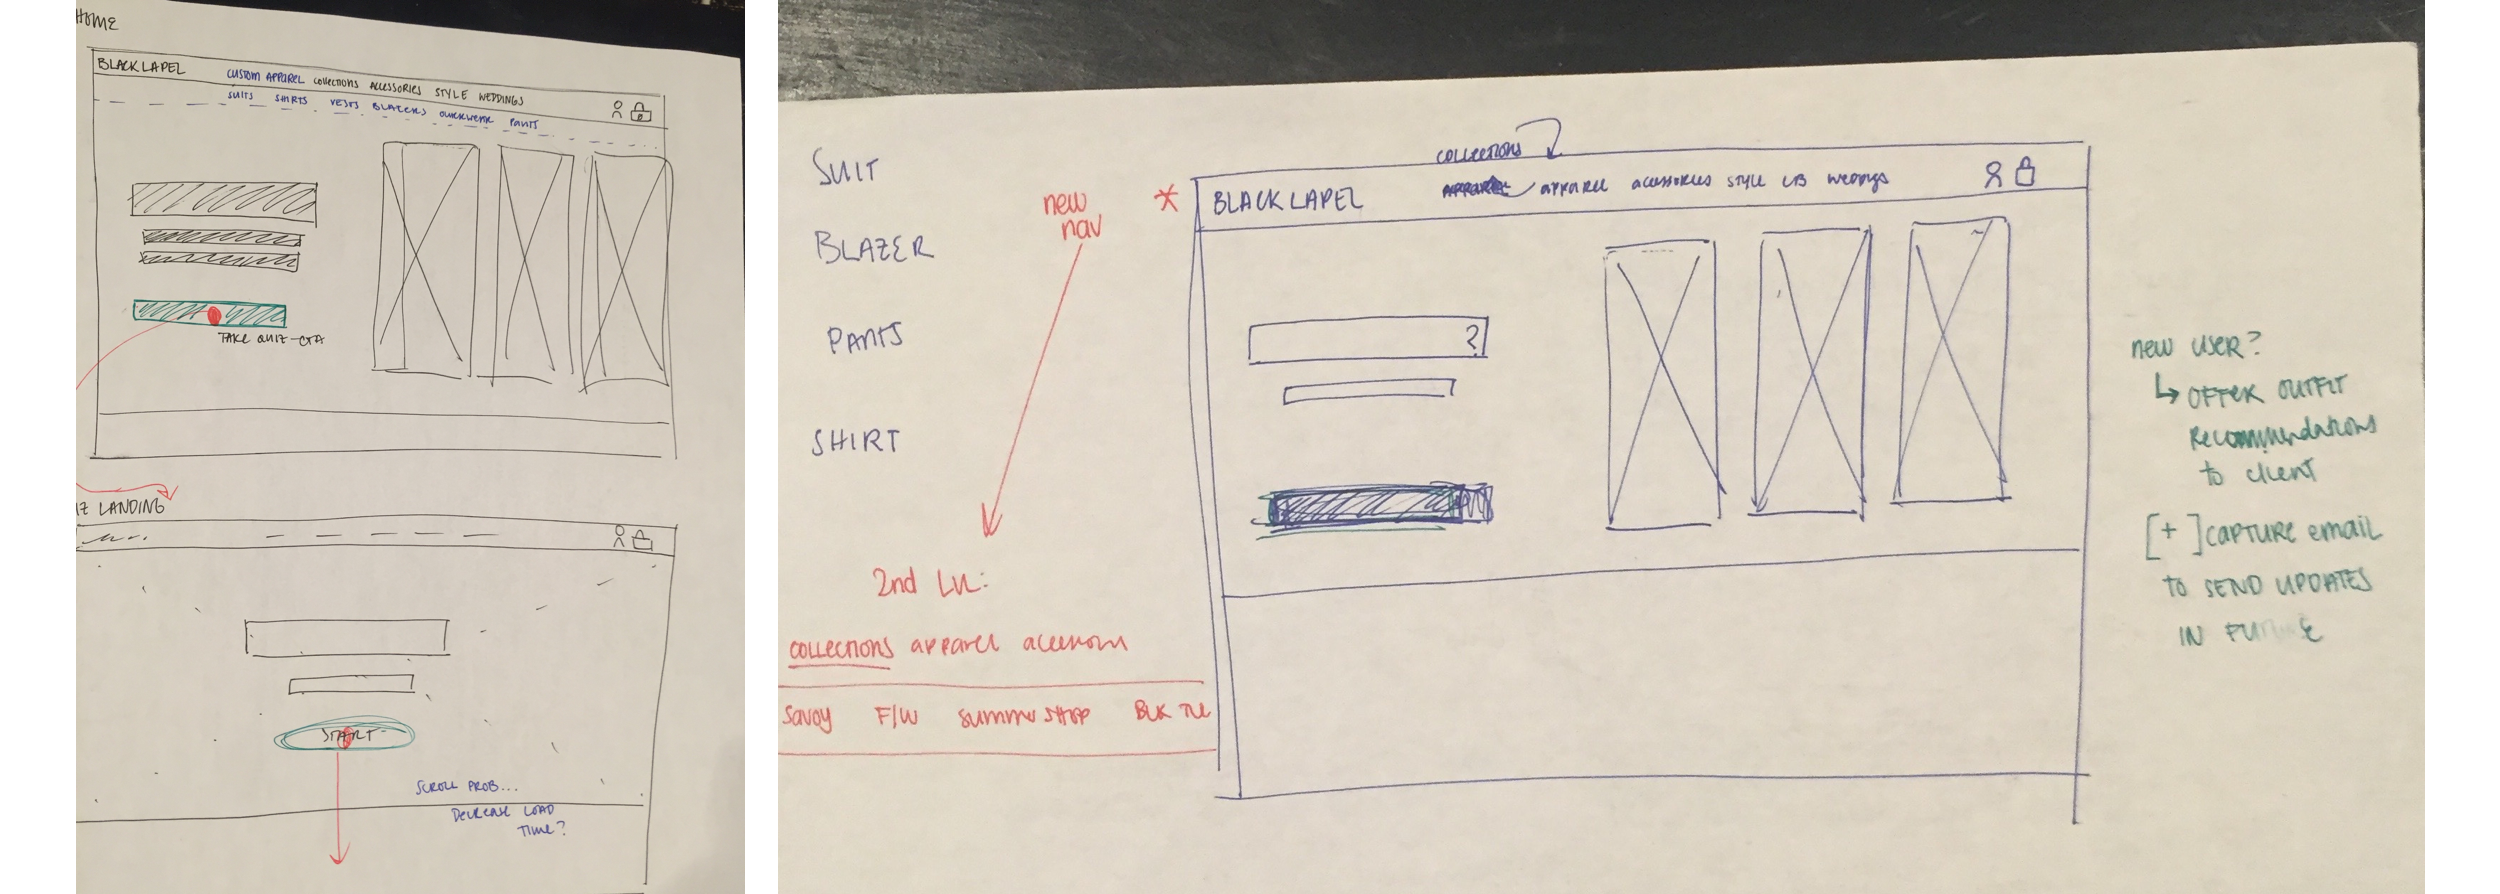 HOME
BLACK LAPEL
CUSTOM APPAREL COLLECTIONS ACCESSORIES STYLE WEDDINGS
SUITS SHIRTS VESTS BLAZERS OUTERWEAR PANTS
TAKE QUIZ - CTA
IZ LANDING
START
SCROLL PROB...
DECREASE LOAD
TIME?
SUIT
BLAZER
PANTS
SHIRT
new
nav
*
COLLECTIONS
BLACK LAPEL
APPAREL apparel accessories STYLE LAB weddings
?
2nd LVL:
COLLECTIONS apparel
Savoy F/W summer SHOP BLK TIE
new USER?
↳ OFFER OUTFIT
Recommendations
to client
[+] CAPTURE email
TO SEND UPDATES
IN FUTURE